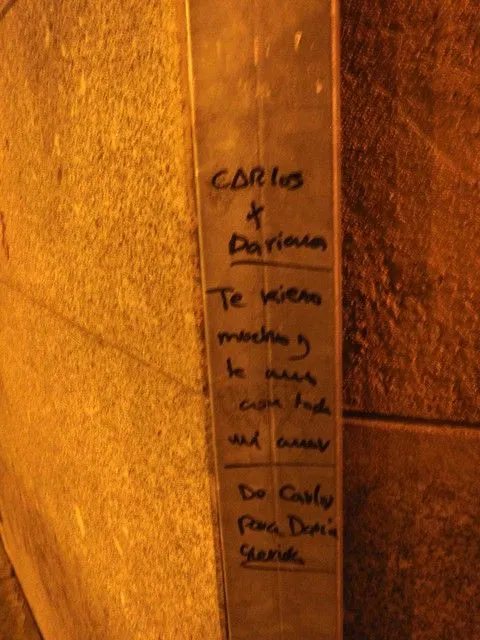 CARlos
+
Dariana
Te kiero
mucho y
te amo
con toda
mi amor
De Carlos
Para Daria
Querida